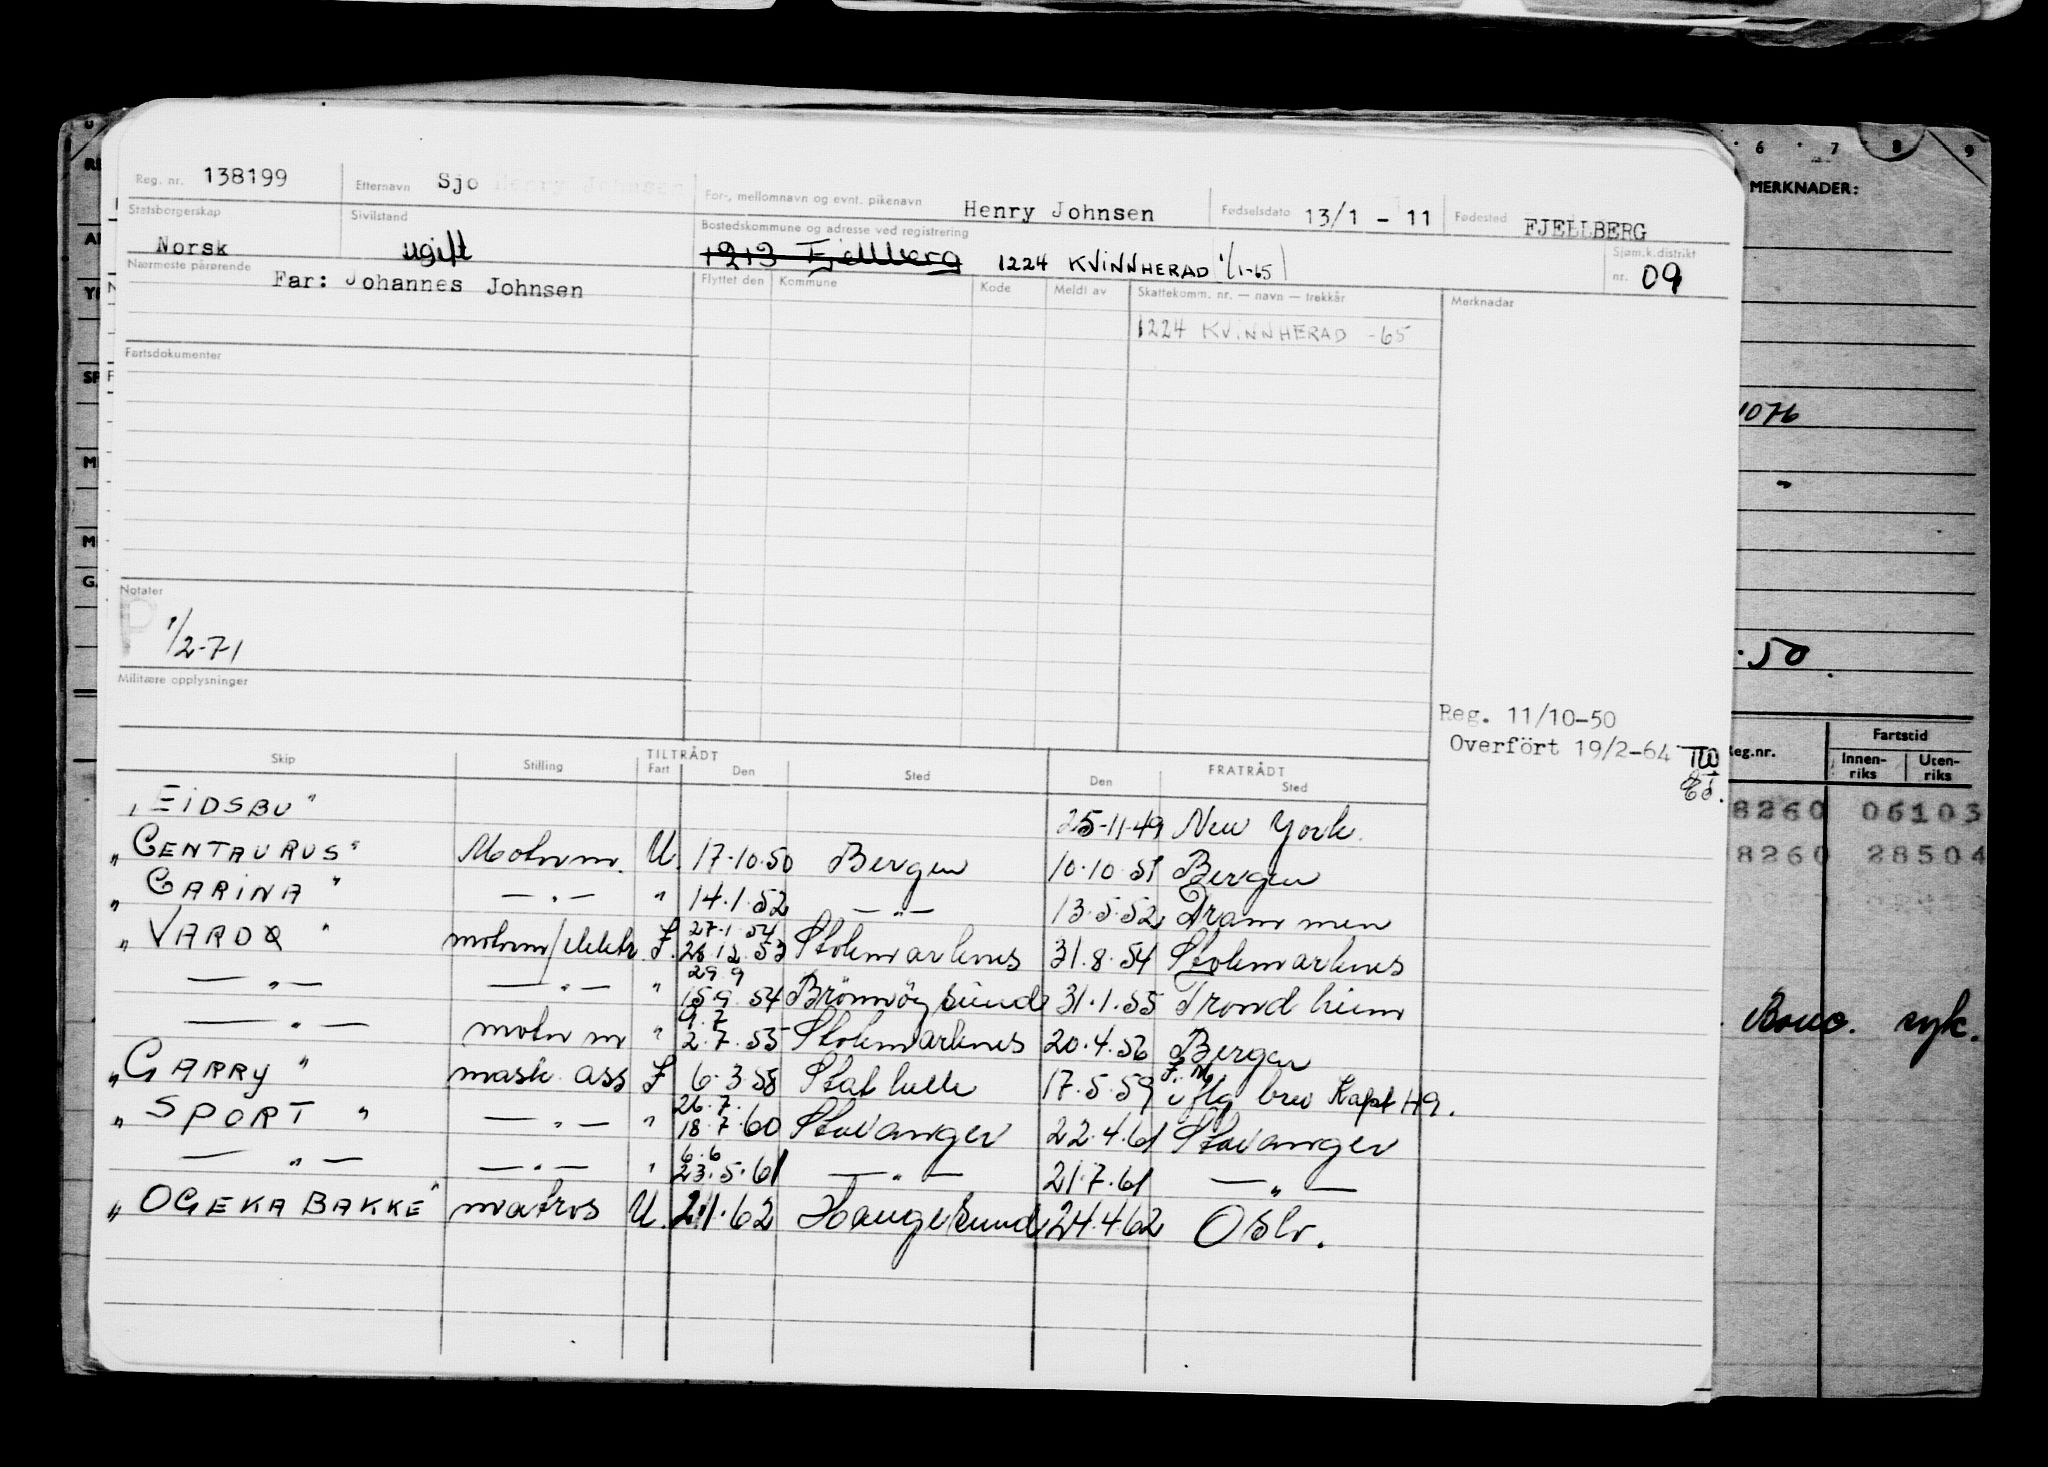 Reg. nr. 138199 Etternavn Sjo Henry Johnsen For-, mellomnavn og evnt. pikenavn Henry Johnsen Fødselsdato 13/1 - 11 Fødested FJELLBERG
Statsborgerskap Norsk Sivilstand ugift Bostedskommune og adresse ved registrering 1213 Fjellberg 1224 KVINNHERAD 1/1-65 Sjøm.k.distrikt nr. 09
Nærmeste pårørende Far: Johannes Johnsen
Flyttet den Kommune Kode Meldt av Skattekomm. nr. — navn — trekkår Merknader
1224 KVINNHERAD -65
Fartsdokumenter
Notater
P 1/2-71
Militære opplysninger
Reg. 11/10-50
Overfört 19/2-64
TILTRÅDT FRATRÅDT
Skip Stilling Fart Den Sted Den Sted
"EIDSBU" 25-11-49 New York.
"CENTAURUS" Motorm. U. 17.10.50 Bergen 10.10.51 Bergen
"CARINA" — " — " 14.1.52 — " — 13.5.52 Drammen
"VARDØ" motorm/elektr. I. 27.1.54 28.12.53 Stokmarknes 31.8.54 Stokmarknes
— " — — " — " 29.9 15.9.54 Brönnöysund 31.1.55 Trondheim
— " — motorm " 9.7 2.7.55 Stokmarknes 20.4.56 Bergen
"GARRY" mask. ass I 6.3.58 Stathelle 17.5.59 iflg brev Kapt H9.
"SPORT" — " — " 26.7. 18.7.60 Stavanger 22.4.61 Stavanger
— " — — " — " 6.6 23.5.61 — " — 21.7.61 — " —
"OGEKA BAKKE" matros U. 2.1.62 Haugesund 24.4.62 Oslo.
6 7 8 9
MERKNADER:
1076
.50
Reg.nr. Fartstid
Innenriks Utenriks
8260 06103
8260 28504
syk.